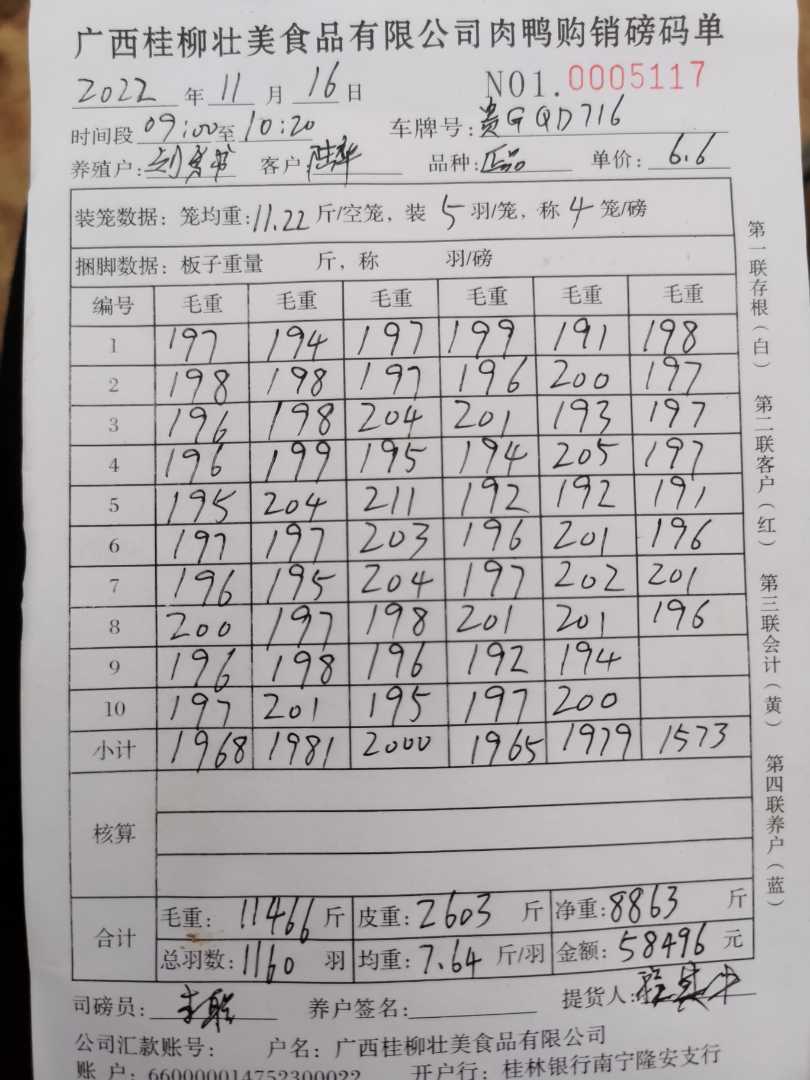 广西桂柳壮美食品有限公司肉鸭购销磅码单
2022 年 11 月 16 日 NO1.0005117
时间段 09:00至10:20 车牌号: 贵GQD716
养殖户: 客户: 陆华 品种: 正品 单价: 6.6
装笼数据: 笼均重: 11.22 斤/空笼, 装 5 羽/笼, 称 4 笼/磅
捆脚数据: 板子重量 斤, 称 羽/磅
编号 毛重 毛重 毛重 毛重 毛重 毛重
1 197 194 197 199 191 198
2 198 198 197 196 200 197
3 196 198 204 201 193 197
4 196 199 195 194 205 197
5 195 204 211 192 192 191
6 197 197 203 196 201 196
7 196 195 204 197 202 201
8 200 197 198 201 201 196
9 196 198 196 192 194
10 197 201 195 197 200
小计 1968 1981 2000 1965 1979 1573
核算
合计
毛重: 11466 斤 皮重: 2603 斤 净重: 8863 斤
总羽数: 1160 羽 均重: 7.64 斤/羽 金额: 58496 元
司磅员: 养户签名: 提货人:
公司汇款账号: 户名: 广西桂柳壮美食品有限公司
账 户: 660000014752300022 开户行: 桂林银行南宁隆安支行
第一联存根(白)
第二联客户(红)
第三联会计(黄)
第四联养户(蓝)